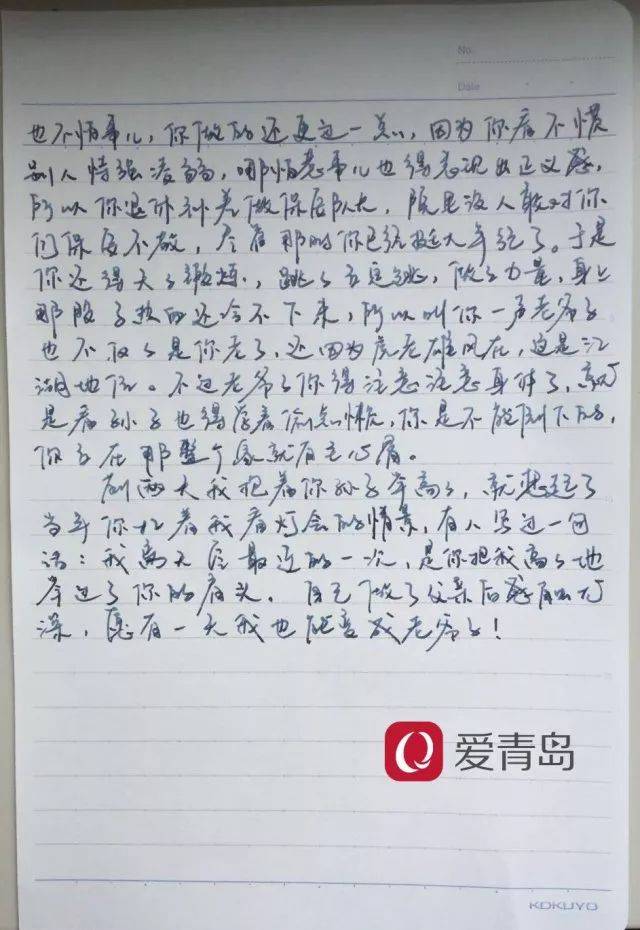 No.
Date
也不怕事儿，你做的还更过一点儿，因为你看不惯
别人恃强凌弱，哪怕惹事儿也得表现出正义感，
所以你退休补差做保卫队长，愣是没人敢对你
们保卫不敬，尽管那时你已经挺大年纪了。于是
你还得天天锻炼，跳
那股子热血还冷不下来，所以叫你一声老爷子
也不仅仅是你老了，还因为虎老雄风在，这是江
湖地位。不过老爷子你得注意注意身体了，就
是看孙子也得学着偷点懒，你是不能倒下的，
你在那整个家就有主心骨。
前两天我抱着你孙子举高高，就想起了
当年你扛着我看灯会的情景，有人写过一句
话：我离天空最近的一次，是你把我高高地
举过了你的肩头。自己做了父亲后感触尤
深，愿有一天我也能变成老爷子！
爱青岛
KOKUYO